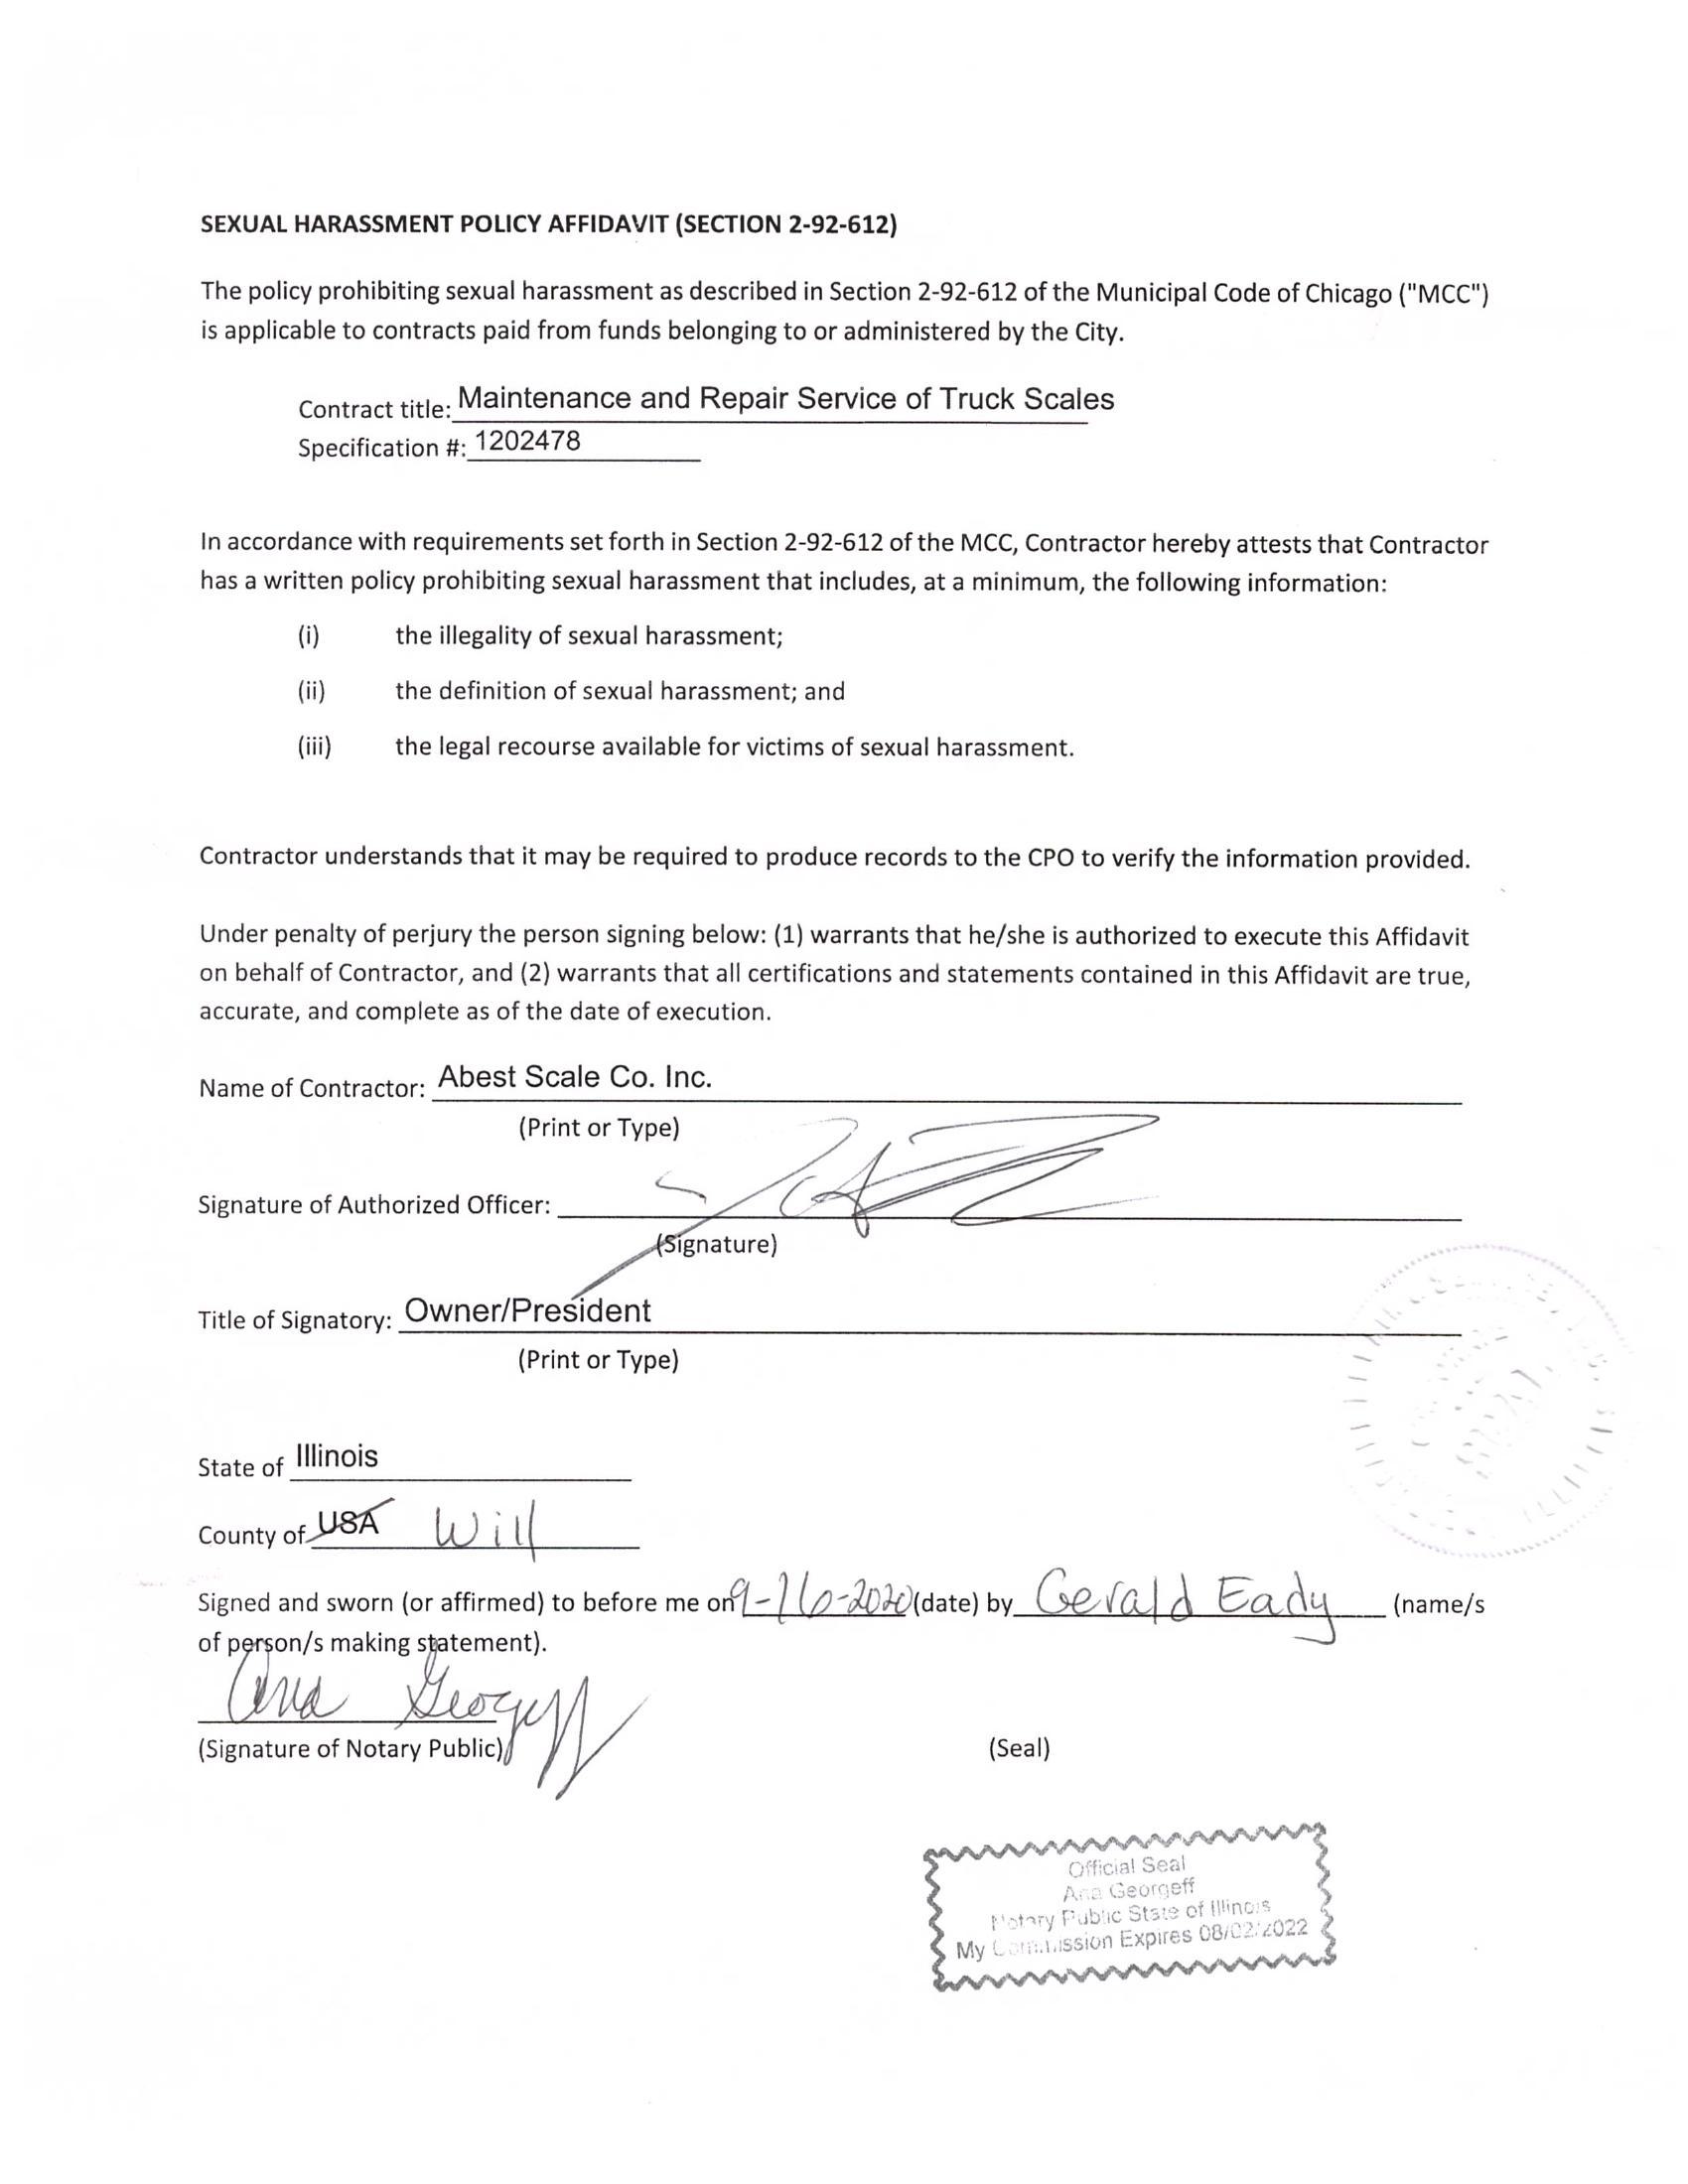 SEXUAL HARASSMENT POLICY AFFIDAVIT (SECTION 2-92-612)
The policy prohibiting sexual harassment as described in Section 2-92-612 of the Municipal Code of Chicago ("MCC")
is applicable to contracts paid from funds belonging to or administered by the City.
Contract title: Maintenance and Repair Service of Truck Scales
Specification #: 1202478
In accordance with requirements set forth in Section 2-92-612 of the MCC, Contractor hereby attests that Contractor
has a written policy prohibiting sexual harassment that includes, at a minimum, the following information:
(i) the illegality of sexual harassment;
(ii) the definition of sexual harassment; and
(iii) the legal recourse available for victims of sexual harassment.
Contractor understands that it may be required to produce records to the CPO to verify the information provided.
Under penalty of perjury the person signing below: (1) warrants that he/she is authorized to execute this Affidavit
on behalf of Contractor, and (2) warrants that all certifications and statements contained in this Affidavit are true,
accurate, and complete as of the date of execution.
Name of Contractor: Abest Scale Co. Inc.
(Print or Type)
Signature of Authorized Officer:
(Signature)
Title of Signatory: Owner/President
(Print or Type)
State of Illinois
County of USA Will
Signed and sworn (or affirmed) to before me on 9-16-2020 (date) by Gerald Eady (name/s
of person/s making statement).
Ana Georgeff
(Signature of Notary Public) (Seal)
Official Seal
Ana Georgeff
Notary Public State of Illinois
My Commission Expires 08/02/2022